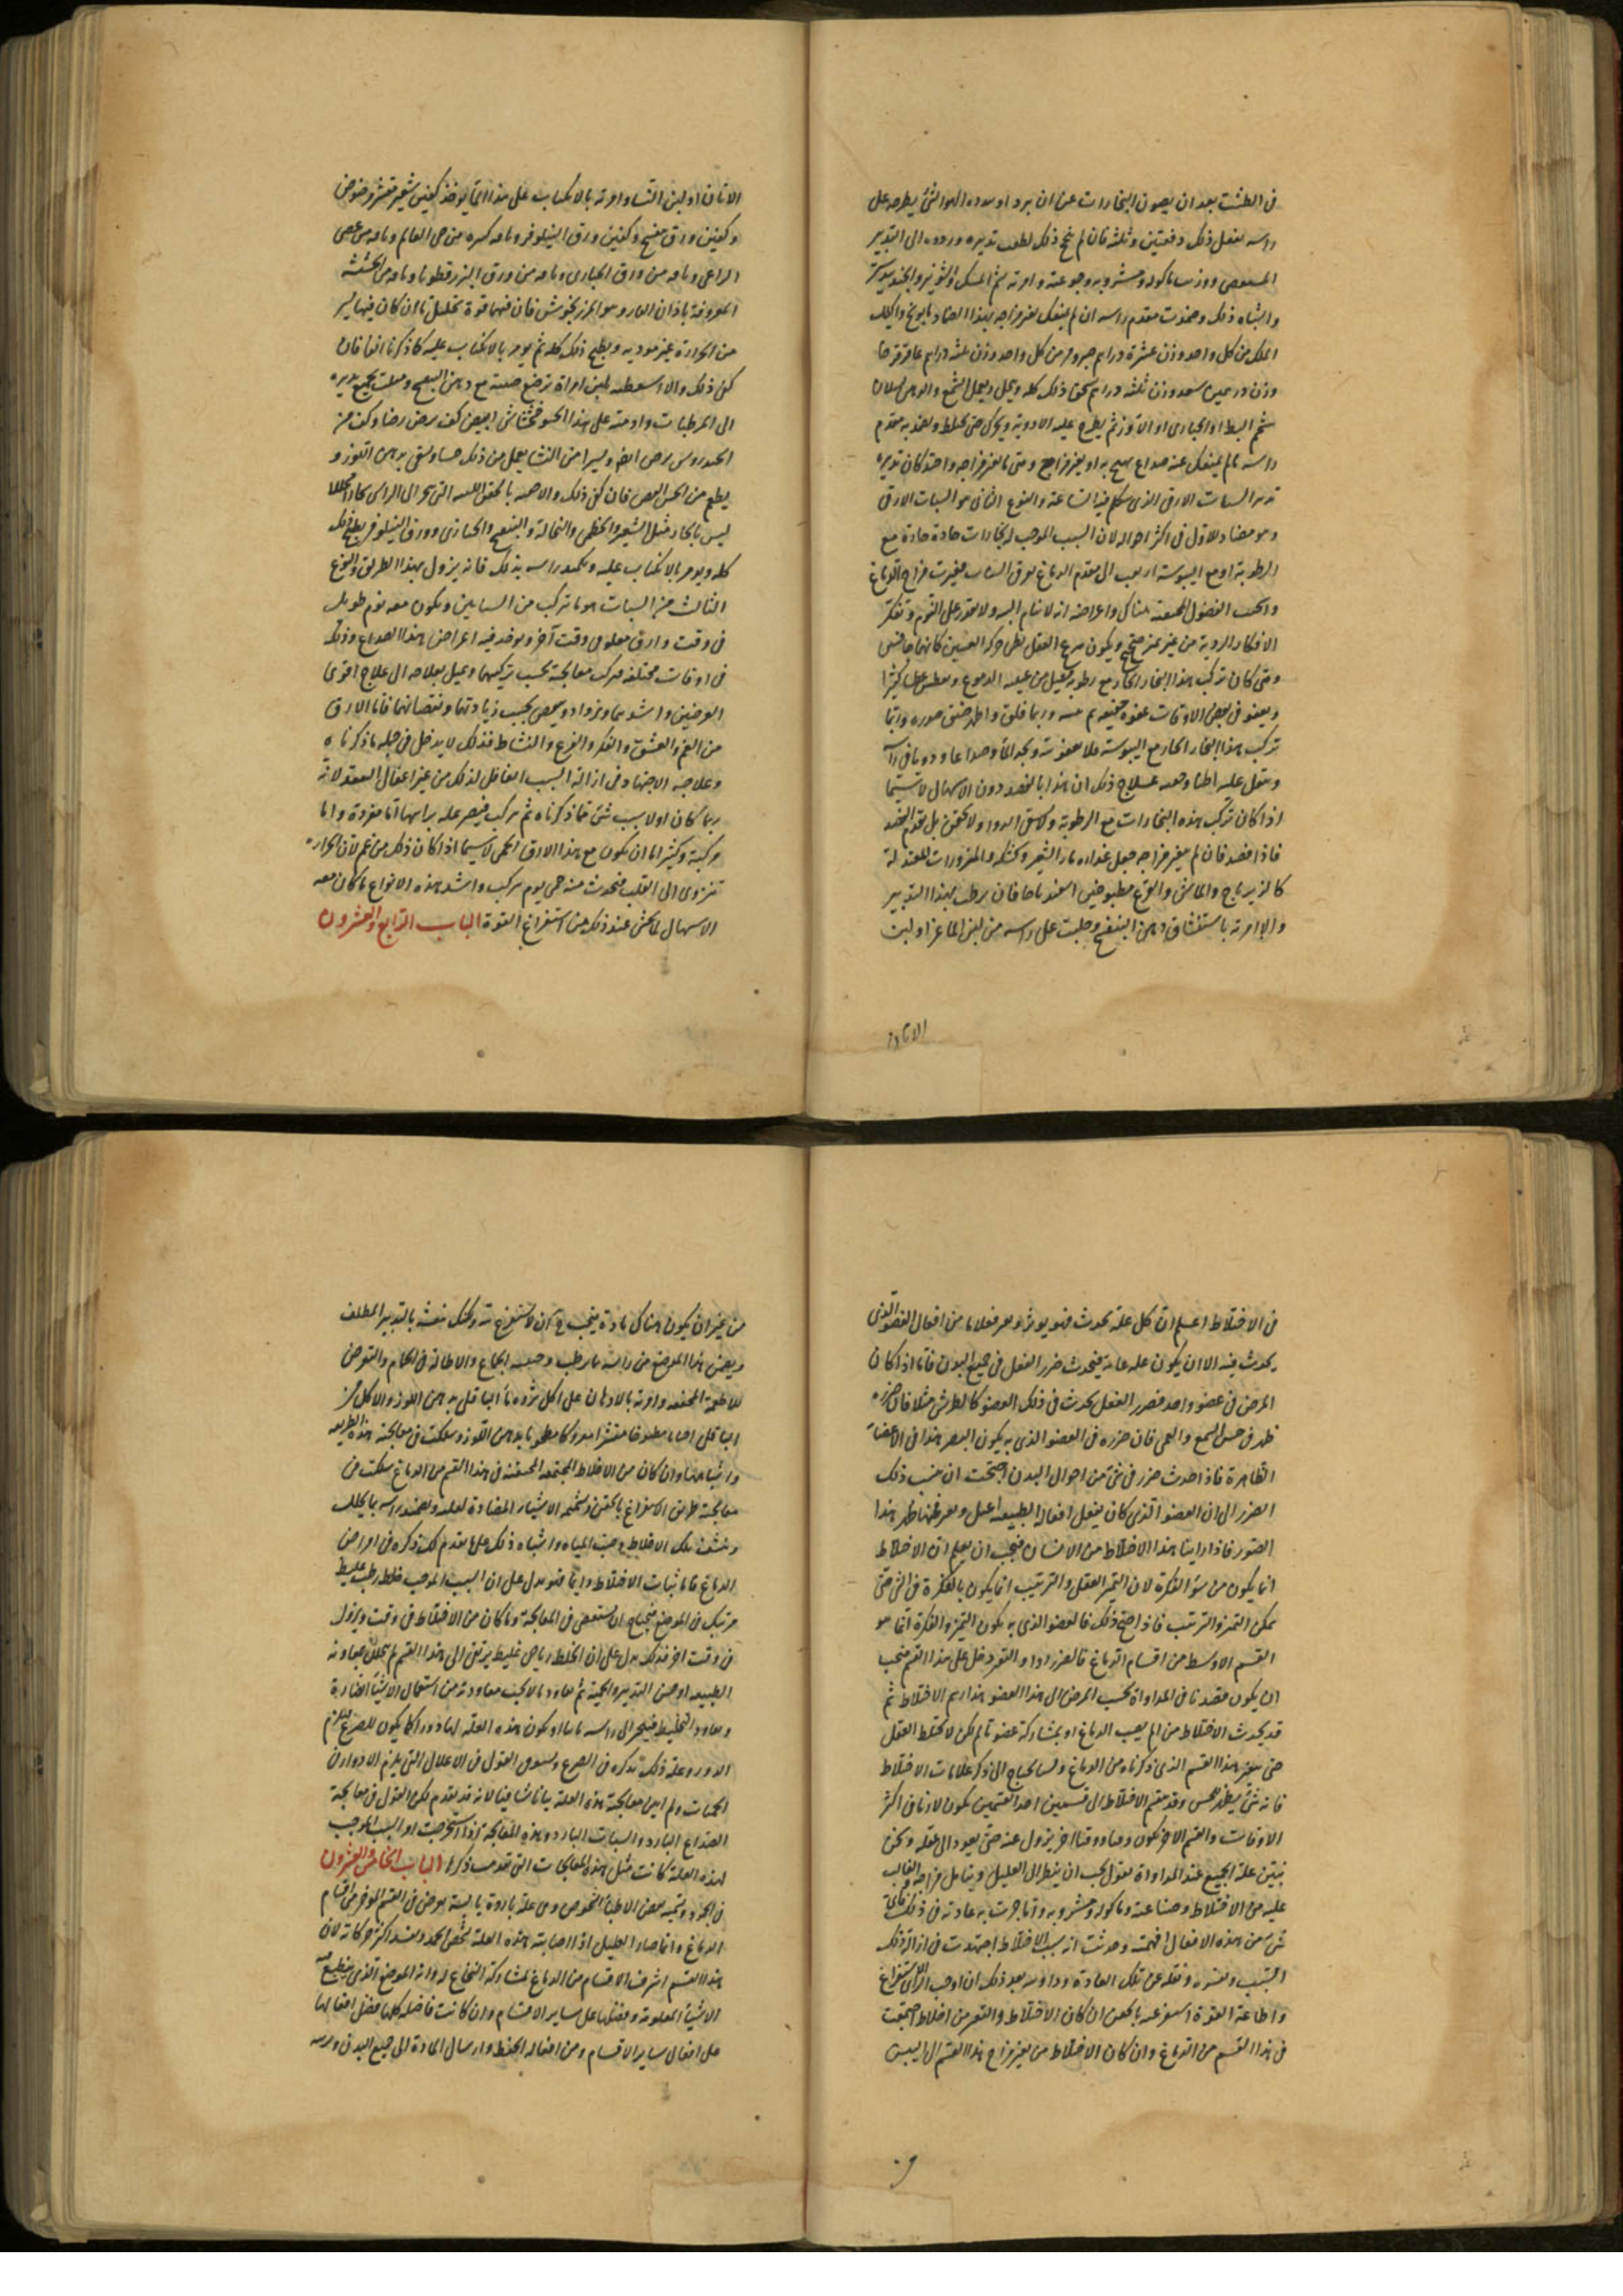 في الطشت بعد ان يصون البخارات عن ان يرد او الهوا الشئ يطرحه على
راسه يفعل ذلك دفعتين وثلثة فان لم ينجح ذلك لطف تدبيره ورده الى التدبير
ماكوله ومشروبه وجوعته وامرته بشم المسك والشونيز والجندبيدستر
واشباه ذلك وضمدت مقدم راسه ان لم ينفك بغير مزاجه بهذا الضماد بابونج واكليل
الملك من كل واحد وزن عشرة دراهم من كل واحد وزن ثلثة دراهم عاقرقرحا
وزن درهمين سعد وزن ثلثة دراهم يسحق ذلك كله وينخل ويعمل الشمع والدهن
شحم البط او الحبارى او الاوز ثم يطرح عليه الادوية ويحرك حتى يختلط ويضمد به مقدم
راسه ما لم يمنعك عنه صداع يهيج به او يغير مزاج ومتى ما تغير مزاجه واحتد كان تدبيره
السبات الارقى الذى فيه الساعة والنوع الثانى هو السبات الارقى
وهو مضاد للاول فى اكثر احواله لان السبب الموجب له بخارات حادة حارة مع
الرطوبة او مع اليبوسة الى مقدم الدماغ فغيرت مزاج الدماغ
الفضول المجتمعة هناك واعراضه انه لا ينام البتة ولا يقدر على النوم وتفكر
الافكار الردية من غير تميز صحيح ويكون سريع العقل بطى حركة العينين كانهما
ومتى كان تركب هذا البخار الحار مع رطوبة من عينيه الدموع ويعطس عطاسا كثيرا
فى بعض الاوقات وربما قلق واظهر ضيق صدره واما
تركب هذا البخار الحار مع اليبوسة فلا معه ويجد الما وصداعا ودويا فى راسه
علاج ذلك ان هذا بالفصد دون الاسهال لا سيما
اذا كان تركب هذه البخارات مع الرطوبة ولا يسقى الدوا ولا يحقن بل يقدم الفصد
فاذا فصد فان لم يتغير مزاجه جعل غذاوه ماء الشعير وكشكه والمزورات المعتدلة
كالزيرباج والماش والقرع مطبوخين اسفيدباجا فان يرطب بهذا التدبير
والا امرته باستنشاق دهن البنفسج وحلبت على راسه من لبن الماعز او لبن
الاتان
الاتان او لبن النساء وامرته بالانكباب على هذا الما يوخذ كفين شعير مقشر مرضوض
وكفين ورق بنفسج وكفين ورق النيلوفر وباقة كبيرة من حى العالم وباقة من عصى
الراعى وباقة من ورق الخبازى وباقة من ورق البزرقطونا وباقة من الحشيشة
المعروفة باذان الفار وهو المرزنجوش فان فيها قوة تحليل ما ان كان فيها يسير
من الحرارة غير موذية ويطبخ ذلك كله ثم يومر بالانكباب عليه كما ذكرنا انفا فان
كفى ذلك والا اسعطته بلبن امراة ترضع صبية مع دهن البنفسج وملت بجميع تدبيره
الى المرطبات وادمنه على هذا الحسو خشخاش ابيض كف يرض رضا وكف من
الخندروس يرض ايضا ويسيرا من النشا يعمل من ذلك حسا ويسقى بدهن اللوز و
يطعم من الخس الغض فان كفى ذلك والا حقنته بالحقن اللينة التى تجر الى الراس بخارا
ليس بالحاد مثل الشعير والخطمى والنخالة والبنفسج والخبازى وورق النيلوفر يطبخ ذلك
كله ويومر بالانكباب عليه وتكمد راسه بذلك فانه يزول بهذا الطريق والنوع
الثالث من السبات هو ما تركب من السباتين ويكون معه نوم طويل
فى وقت وارق مقلق فى وقت آخر ويوخذ فيه اعراض هذا الصداع وذلك
فى اوقات مختلفة فركب معالجته بحسب تركيبهما ويميل بعلاجه الى علاج اقوى
العرضين واشدهما ويزداد وينقص بحسب زيادتهما ونقصانهما فاما الارق
من الغم والعشق والفكر والفزع والنشاط فذلك لا يدخل فى جملة ما ذكرناه
وعلاجه الاجتهاد فى ازالة السبب الفاعل لذلك من غير اغفال العقد لانه
ربما كان اولا بسبب شئ مما ذكرناه ثم تركب فيصير علة براسها اما مفردة واما
مركبة وكثيرا ما ان يكون مع هذا الارق الحمى لا سيما اذا كان ذلك من غم لان الحرارة
تنزوى الى القلب فتحدث منه حمى يوم مركب واشد هذه الانواع ما كان معه
الاسهال لما يخشى عند ذلك من استفراغ القوة الباب الرابع والعشرون
فى الاختلاط اعلم ان كل علة تحدث فهو يوثر ويضر فعلا ما من افعال العضو الذى
يحدث فيه الا ان يكون علة عامة فيحدث ضرر الفعل فى جميع البدن فاما اذا كان
المرض فى عضو واحد فضرر الفعل يحدث فى ذلك العضو كالطرش مثلا فان ضرره
ظهر فى حس السمع والعمى فان ضرره فى العضو الذى به يكون البصر هذا فى الاعضاء
الظاهرة فاذا حدث ضرر فى شئ من احوال البدن احتجت ان تنسب ذلك
الضرر الى ان العضو الذى كان يفعل افعاله الطبيعية اعتل وضر فظاهر هذا
التصور فاذا راينا هذا الاختلاط من الانسان فيجب ان يعلم ان الاختلاط
انما يكون من سوء الفكرة لان التميز العقلى والترتيب انما يكون بالفكرة فى الشئ حتى
يمكن التميز والترتيب فاذا صح ذلك فالعضو الذى به يكون التميز والفكرة انما هو
القسم الاوسط من اقسام الدماغ فالضرر اذا والتغير دخل على هذا القسم فيجب
ان يكون قصدنا فى المداواة بحسب المرض الى هذا العضو هذا رسم الاختلاط ثم
قد يحدث الاختلاط من الم يصيب الدماغ او بمشاركة عضو تالم لكن لا يختلط العقل
حتى يتغير هذا القسم الذى ذكرناه من الدماغ ولسنا نحتاج الى ذكر علامات الاختلاط
فانه شئ يظهر للحس وقد ينقسم الاختلاط الى قسمين احد القسمين يكون لازما فى اكثر
الاوقات والقسم الاخر يكون وقتا ووقتا اخر يزول عنه حتى يعود الى عقله ونحن
نبين علة الجميع عند المداواة نقول يجب ان ينظر الى العليل ويتامل مزاجه والغالب
عليه من الاختلاط وصناعته وماكوله ومشروبه وما جرت به عادته فى ذلك فاى
شئ من هذه الافعال افهمته وحدثت انه سبب الاختلاط اجتهدت فى ازالة ذلك
السبب وتغييره ونقله عن تلك العادة وداويته بعد ذلك ان اوجب الراى استفراغه
واطاعته القوة استفرغته بالحقن ان كان الاختلاط والتغير من اخلاط اجتمعت
فى هذا القسم من الدماغ وان كان الاختلاط من تغير مزاج هذا القسم الى اليبس
من غير ان يكون هناك مادة فيجب ان لا تستفرغته ولكن تغيثه بالتدبير الملطف
وتخص هذا الموضع من راسه بما يرطب وجنبه الجماع والاطالة فى الحمام والتعرض
للاطعمة المجففة وامرته بالادمان على اكل مزورة ماء الباقلى بدهن اللوز والاكل من
الباقلى احيانا مطبوخا مقشرا مدوكا مطبوخا بدهن اللوز وسلكت فى معالجته هذه الطريقة
واشباهها وان كان من الاخلاط المجتمعة المحتقنة فى هذا القسم من الدماغ سلكت فى
معالجته طريق الاستفراغ بالحقن وتشميم الاشياء المضادة لعلته وتضميد راسه بما يحلل
وينشف تلك الاخلاط وصب المياه واشباه ذلك على ما تقدم لك ذكره فى امراض
الدماغ فاما ثبات الاختلاط دايما فهو يدل على ان السبب الموجب خلط رطب غليظ
مرتبك فى الموضع فيحتاج ان يستقصى فى المعالجة وما كان من الاختلاط فى وقت ويزول
فى وقت اخر فذلك يدل على ان الخلط رياحى غليظ يرتقى الى هذا القسم ثم يتحلل بمعاونة
الطبيعة او حسن التدبير والحمية ثم يعاود بما لا يجب معاودته من استعمال الاشياء الضارة
ويعاود التخليط فيتبخر الى راسه ثانيا او يكون هذه العلة لها دور كما يكون للصرع فيلزم
الدور وعلة ذلك نذكره فى الصرع ونستوفى القول فى الاعلال التى يلزم الادوار فى
الحميات ولم ابين معالجة هذه العلة بيانا شافيا لانه قد تقدم لك القول فى معالجة
الصداع البارد والسبات البارد وهذه المعالجة اذا استخرجت او السبب الموجب
لهذه العلة كانت مثل هذه المعالجات التى تقدمت ذكرها الباب الخامس والعشرون
فى الجمود ويسميه بعض الاطباء الشخوص وهى علة باردة يابسة يعرض فى القسم الموخر من اقسام
الدماغ وانما صار العليل اذا اصابته هذه العلة شخص وجمد وفسد اكثر حركاته لان
هذا القسم اشرف الاقسام من الدماغ لمشاركته النخاع له وانه الموضع الذى ينطبع فيه
الاشياء المعلومة وبفضلها على ساير الاقسام وان كانت فاضلة كلها بفضل افعالها
على افعال ساير الاقسام ومن افعاله الحفظ وارسال المادة الى جميع البدن